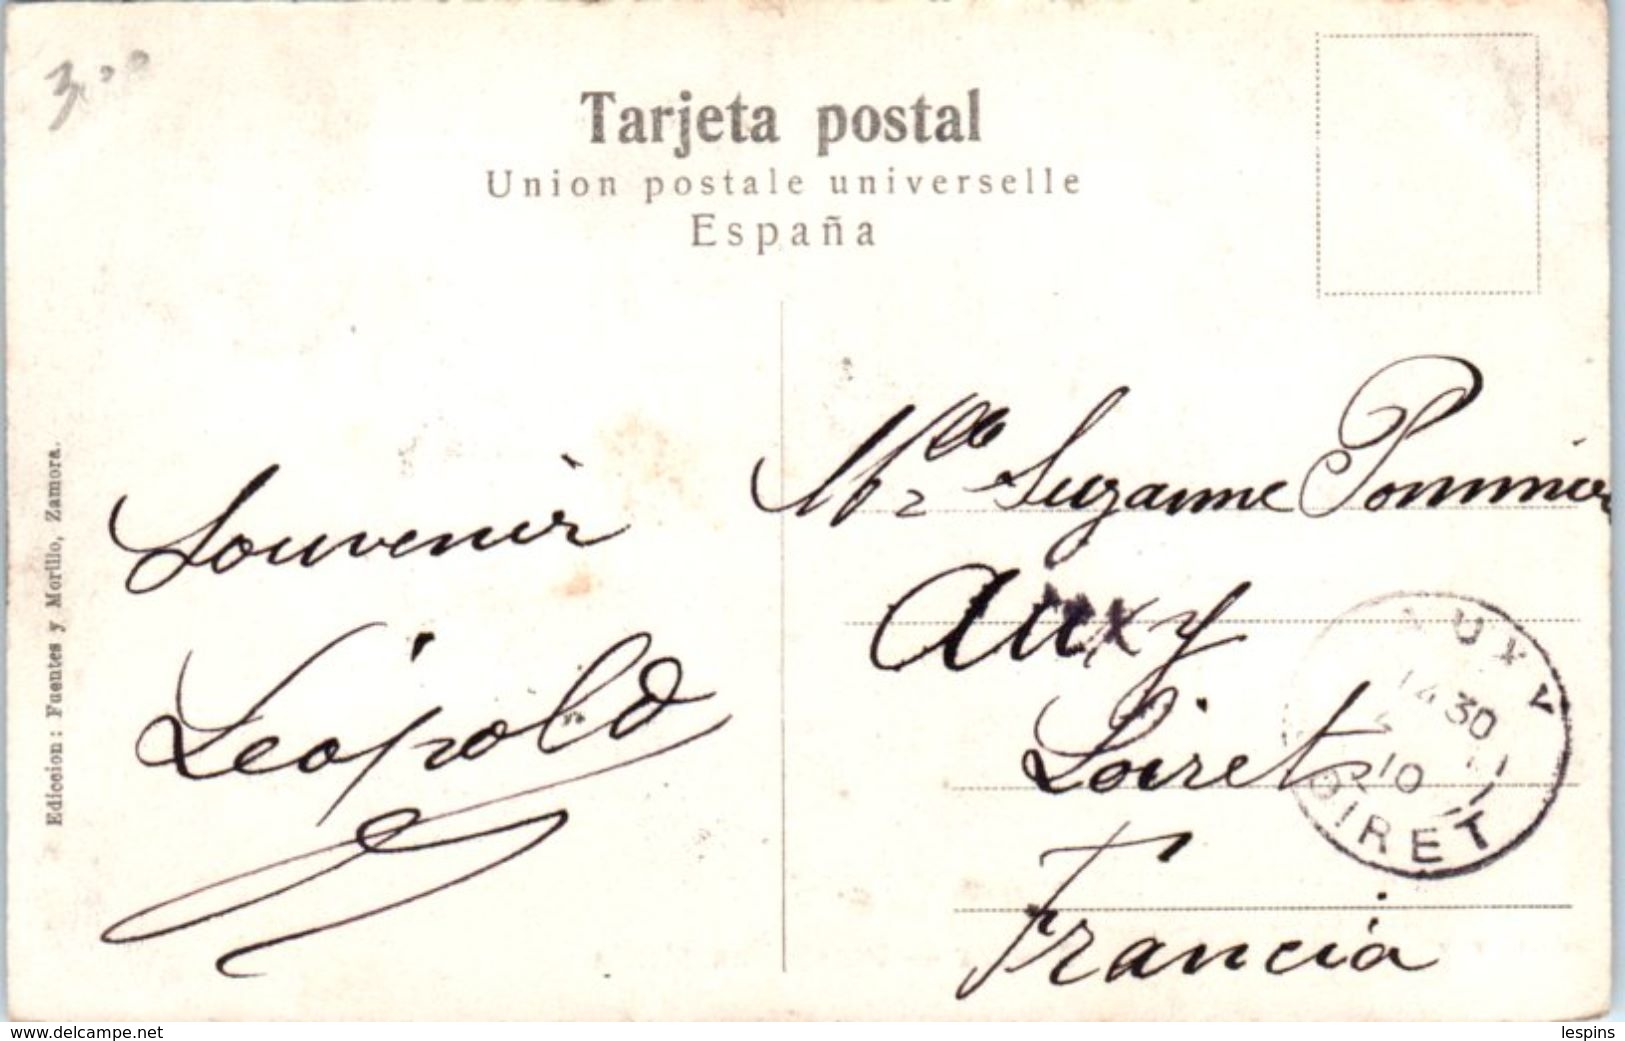 3,00
Tarjeta postal
Union postale universelle
España
Mlle Suzanne Pommier
Auxy
Loiret
Francia
Souvenir
Léopold
Ediccion: Fuentes y Morillo, Zamora.
AUXY
14 30
10
LOIRET
www.delcampe.net
lespins